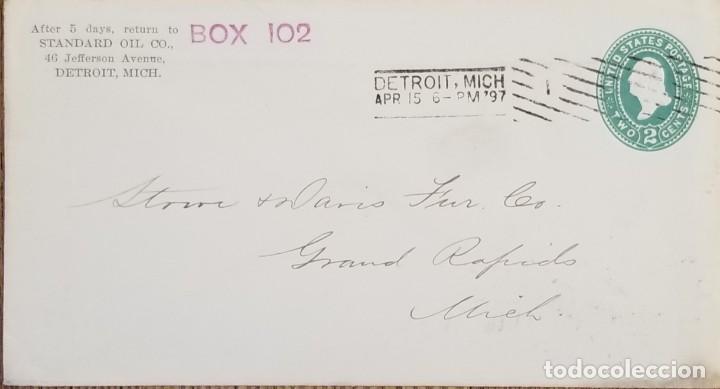 After 5 days, return to
STANDARD OIL CO.,
46 Jefferson Avenue,
DETROIT, MICH.
BOX 102
DETROIT, MICH
APR 15 6-PM '97
1
UNITED STATES POSTAGE
TWO 2 CENTS
Stowe & Davis Fur. Co.
Grand Rapids
Mich.
todocoleccion
todocoleccion.net